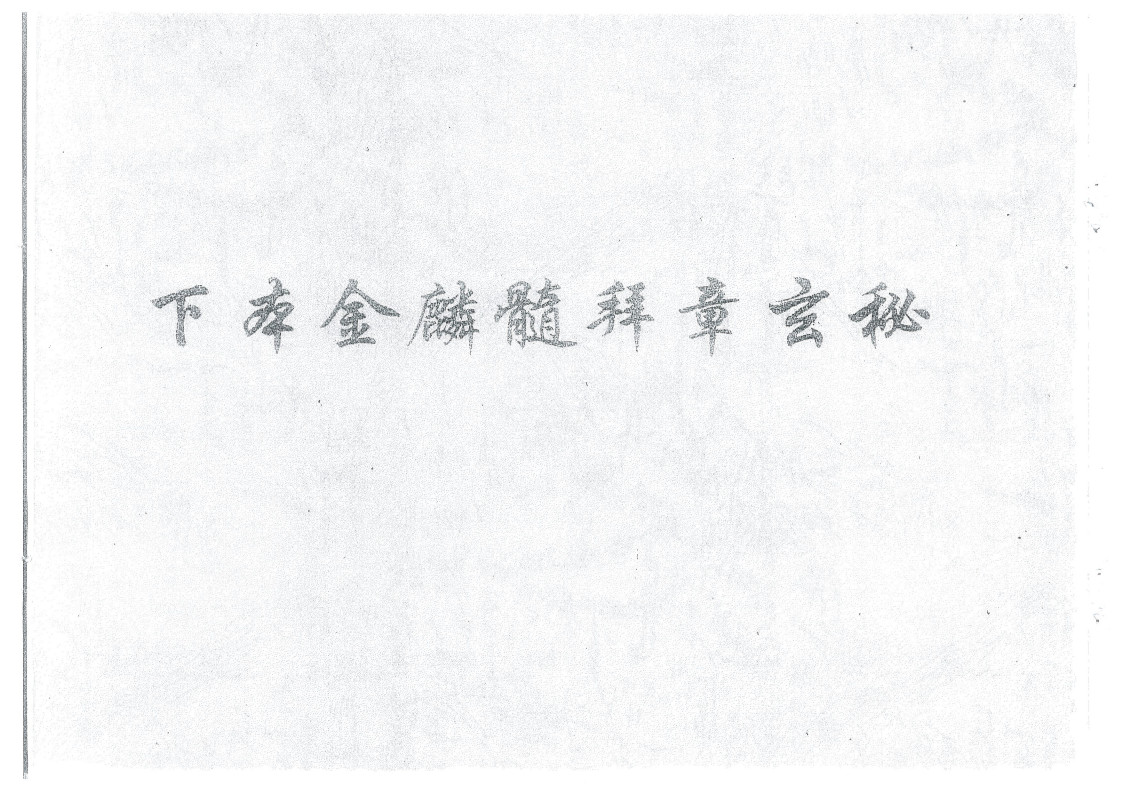 下本金麟髓拜章玄秘